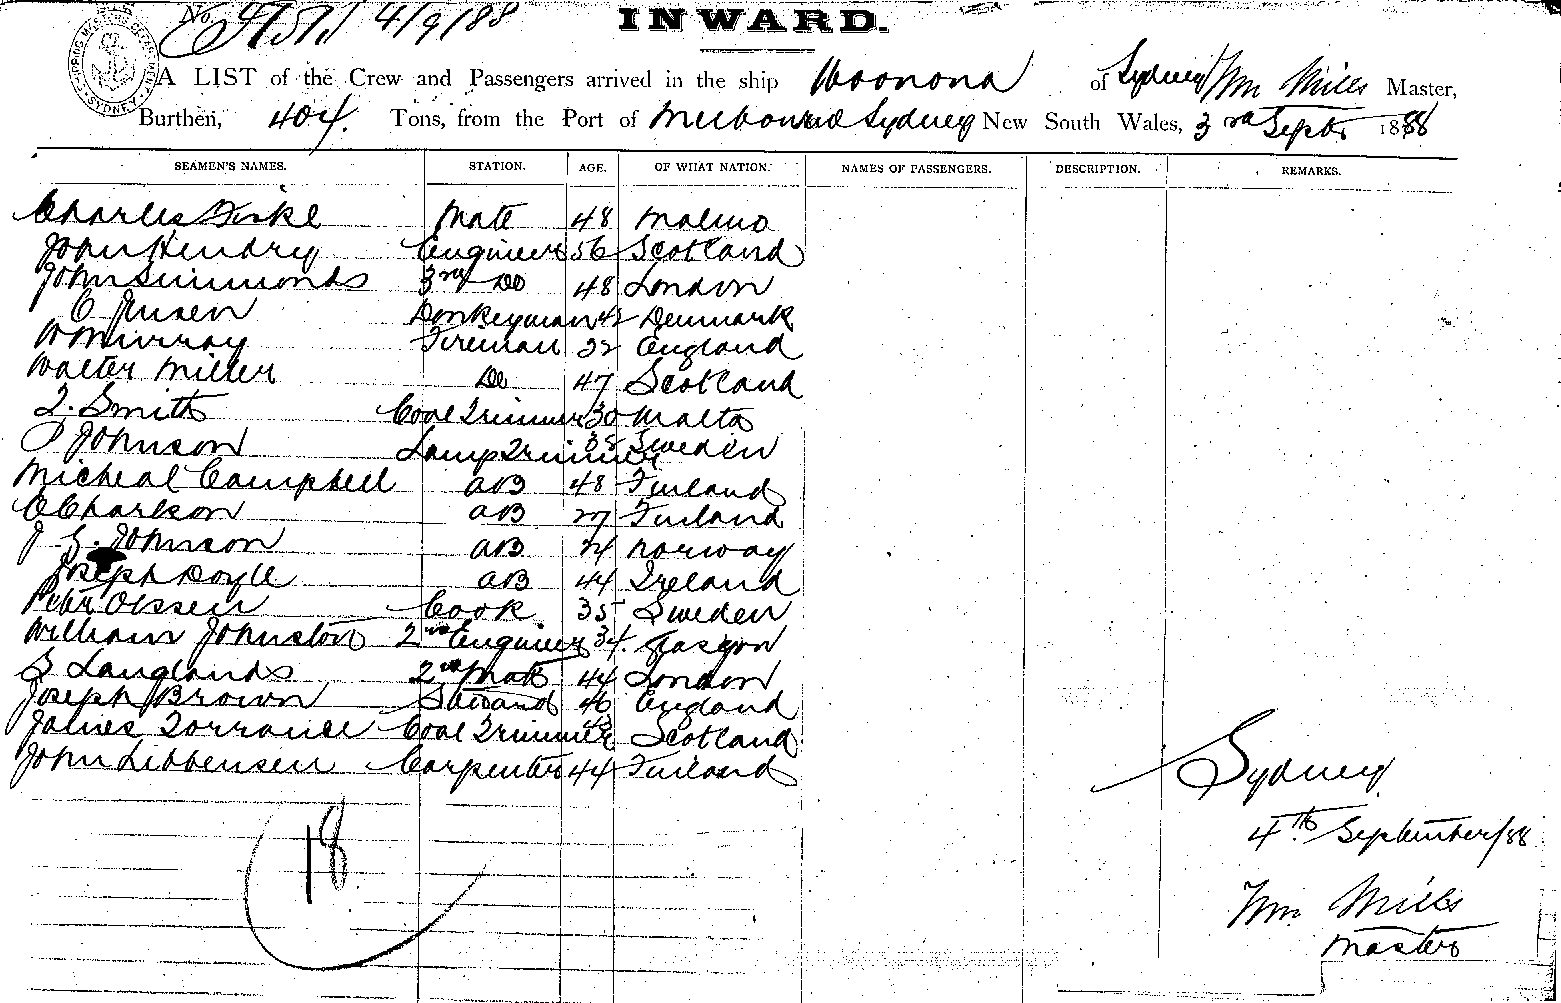 No 4/9/88
INWARD.
SHIPPING MASTER'S DEPARTMENT SYDNEY
A LIST of the Crew and Passengers arrived in the ship Woonona of Sydney Wm Mills Master,
Burthen, 404. Tons, from the Port of Melbourne Sydney New South Wales, 3rd Septr 1888
SEAMEN'S NAMES. STATION. AGE. OF WHAT NATION. NAMES OF PASSENGERS. DESCRIPTION. REMARKS.
Charles Mate 48 Malmo
John Hendry Engineer 56 Scotland
John Simmonds 3rd Do 48 London
C Jensen Donkeyman 42 Denmark
W Murray Fireman 32 England
Walter Miller Do 47 Scotland
T. Smith Coal Trimmer 30 Malta
P Johnson Lamp Trimmer 38 Sweden
Micheal Campbell AB 48 Finland
C Charlson AB 27 Finland
J G. Johnson AB 24 Norway
Joseph Doyle AB 44 Ireland
Peter Olssen Cook 35 Sweden
William Johnston 2nd Engineer 34
S Langlands 2nd Mate 44 London
Joseph Brown Steward 46 England
James Torrance Coal Trimmer 43 Scotland
John Libbensen Carpenter 44 Finland
18
Sydney
4th September/88
Wm Mills
Master